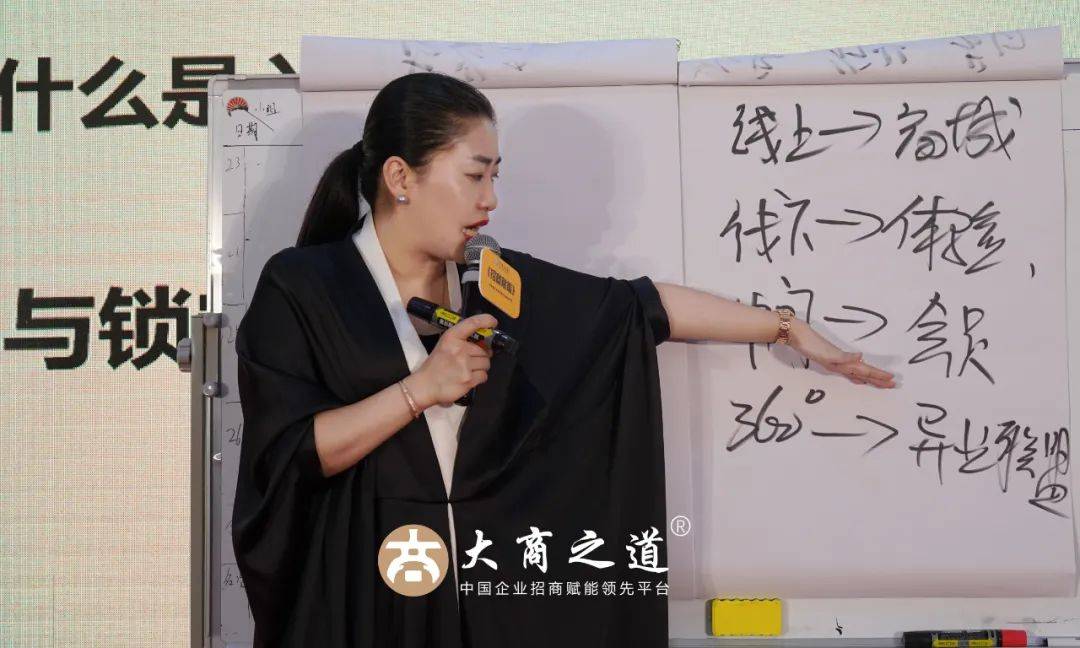 什么是
与锁
小组
日期
23
26
线上→商城
线下→体验
中间→会员
360°→异业联盟
大商之道®
中国企业招商赋能领先平台